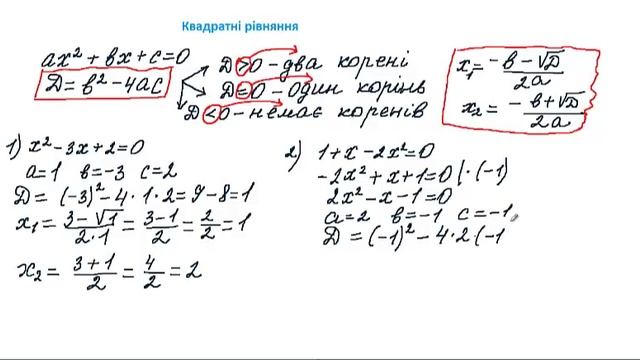 Квадратні рівняння
ax² + bx + c = 0
D = b² - 4ac
D > 0 - два корені
D = 0 - один корінь
D < 0 - немає коренів
x₁ = (-b - √D)/2a
x₂ = (-b + √D)/2a
1) x² - 3x + 2 = 0
a = 1 b = -3 c = 2
D = (-3)² - 4 · 1 · 2 = 9 - 8 = 1
x₁ = (3 - √1)/(2·1) = (3-1)/2 = 2/2 = 1
x₂ = (3+1)/2 = 4/2 = 2
2) 1 + x - 2x² = 0
-2x² + x + 1 = 0 | · (-1)
2x² - x - 1 = 0
a = 2 b = -1 c = -1,
D = (-1)² - 4 · 2 · (-1